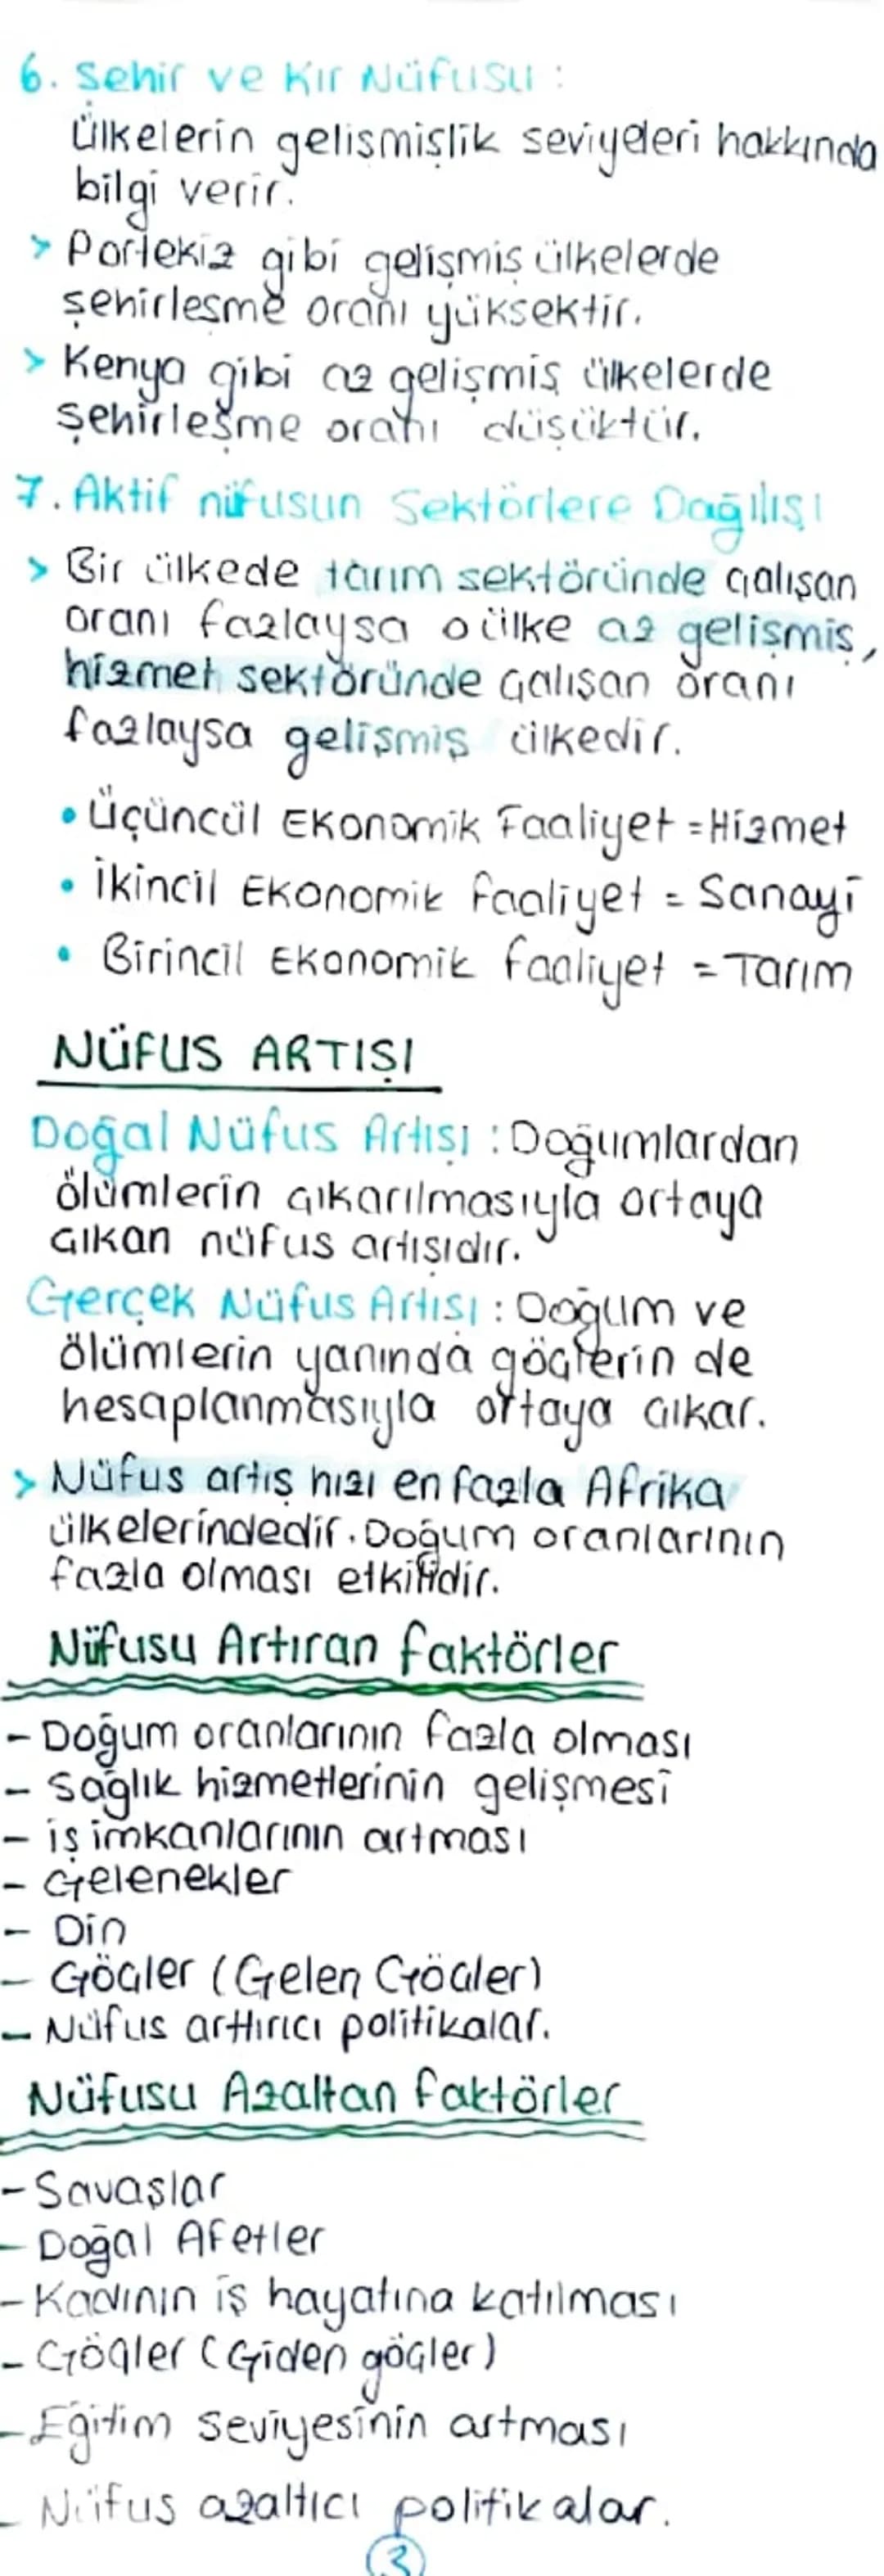 6. Şehir ve Kır Nüfusu :
Ülkelerin gelişmişlik seviyeleri hakkında
bilgi verir.
> Portekiz gibi gelişmiş ülkelerde
şehirleşme oranı yüksektir.
> Kenya gibi az gelişmiş ülkelerde
şehirleşme oranı düşüktür.
7. Aktif nüfusun Sektörlere Dağılışı
> Bir ülkede tarım sektöründe çalışan
oranı fazlaysa o ülke az gelişmiş,
hizmet sektöründe çalışan oranı
fazlaysa gelişmiş ülkedir.
• Üçüncül Ekonomik Faaliyet = Hizmet
• İkincil Ekonomik faaliyet = Sanayi
• Birincil Ekonomik faaliyet = Tarım
NÜFUS ARTIŞI
Doğal Nüfus Artışı : Doğumlardan
ölümlerin çıkarılmasıyla ortaya
çıkan nüfus artışıdır.
Gerçek Nüfus Artışı : Doğum ve
ölümlerin yanında göçlerin de
hesaplanmasıyla ortaya çıkar.
> Nüfus artış hızı en fazla Afrika
ülkelerindedir. Doğum oranlarının
fazla olması etkilidir.
Nüfusu Artıran faktörler
- Doğum oranlarının fazla olması
- Sağlık hizmetlerinin gelişmesi
- iş imkanlarının artması
- Gelenekler
- Din
- Göçler (Gelen Göçler)
- Nüfus arttırıcı politikalar.
Nüfusu Azaltan faktörler
- Savaşlar
- Doğal Afetler
- Kadının iş hayatına katılması
- Göçler (Giden göçler)
- Eğitim seviyesinin artması
- Nüfus azaltıcı politikalar.
3